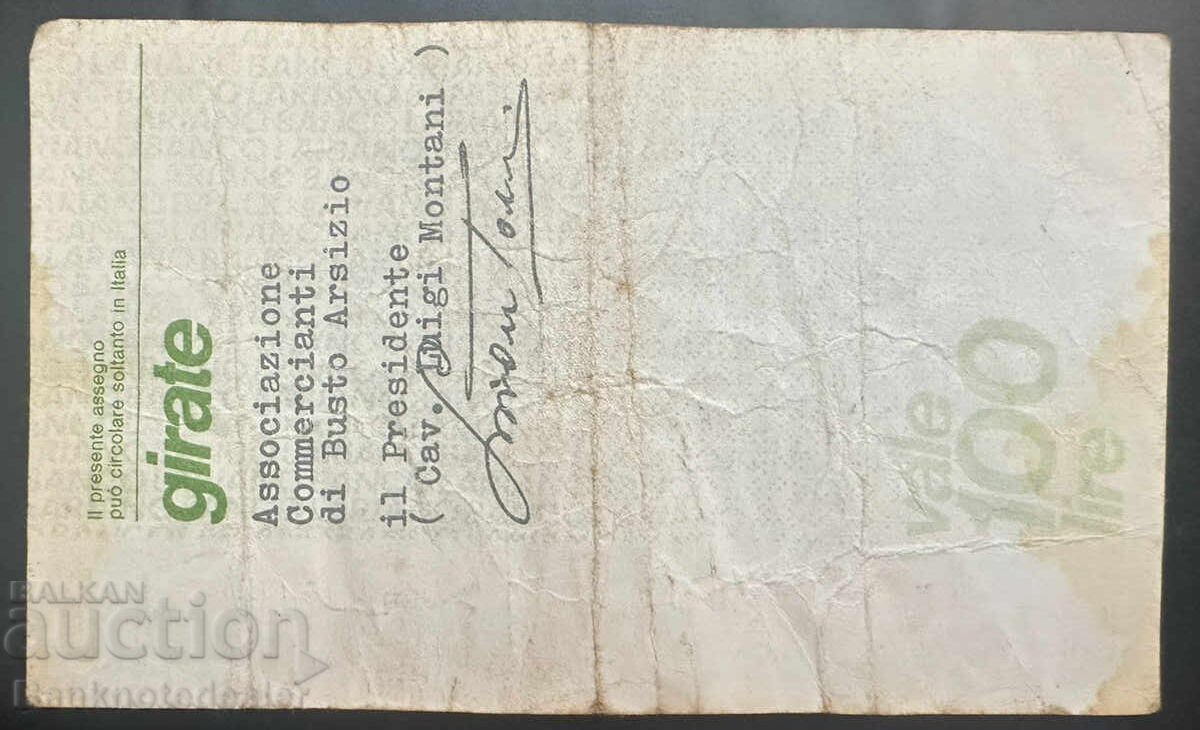 Il presente assegno
puó circolare soltanto in Italia
girate
Associazione
Commercianti
di Busto Arsizio
il Presidente
( Cav. Luigi Montani )
vale
100
lire
BALKAN
auction
Banknotedealer